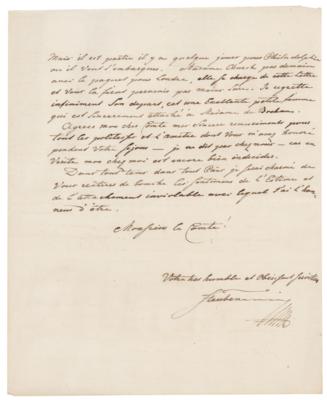 Mais il est partie il y a quelque jours pour Philadelphia
ou il vous s'embarquera. Madame Church pas demain
avec le paquet pour Londre, elle se charge de cette lettre
et vous la fera parvenir par main sure. Je regrette
infiniment son depart, c'est une Excellente petite femme
qui est sincerement attaché a Madame de Brehan.
Agrees mon cher Comte mes sincere remerciments pour
tout les politesses et l'amitie dont vous m'avez honoré
pendent votre sejour – je ne dit pas chez nous – car en
verité mon chez moi est encore bien indecidee.
Dans tout tems dans tout Pais je serai charmé de
vous réiterer de bouche les sentimens de l'Estime et
de l'attachement inviolable avec lequel j'ai l'hon-
neur d'être.
Monsieur le Comte!
Votre tres humble et Obeissant Serviteur
Steuben